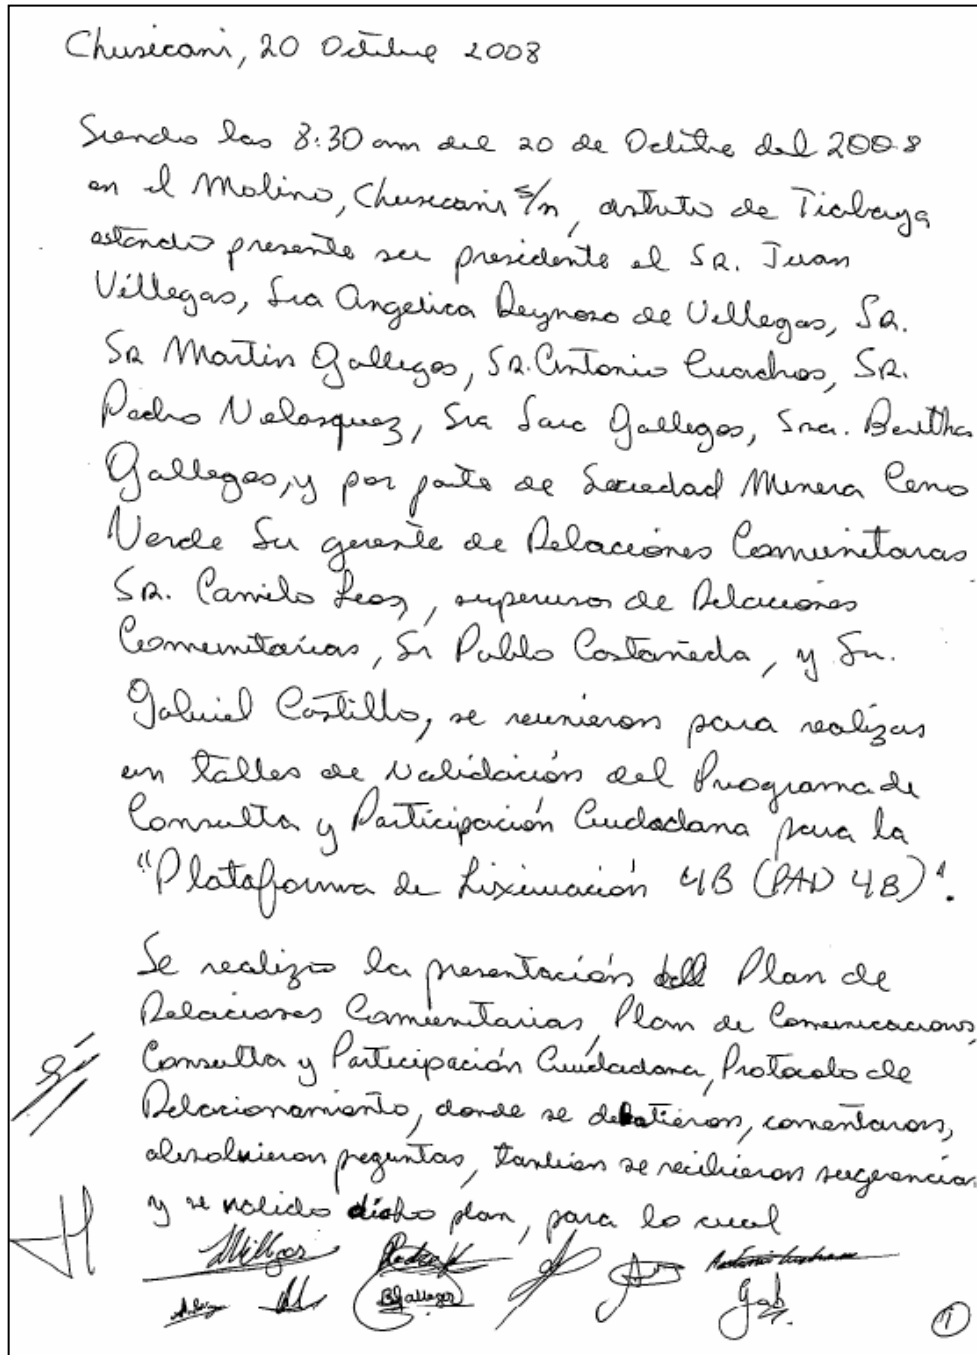 Chusicani, 20 Octubre 2008
Siendo las 8:30 am del 20 de Octubre del 2008
en el Molino, Chusicani s/n, distrito de Tiabaya
estando presente su presidente el SR. Juan
Villegas, Sra Angelica Reynoso de Villegas, SR.
SR Martin Gallegos, SR. Antonio Cuadros, SR.
Pedro Velasquez, Sra Sara Gallegos, Sra. Bertha
Gallegos, y por parte de Sociedad Minera Cerro
Verde Su gerente de Relaciones Comunitarias
SR. Camilo Leon, supervisor de Relaciones
Comunitarias, Sr Pablo Castañeda, y Sr.
Gabriel Castillo, se reunieron para realizar
un taller de Validación del Programa de
Consulta y Participación Ciudadana para la
"Plataforma de Lixiviación 4B (PAD 4B)".
Se realizo la presentación del Plan de
Relaciones Comunitarias, Plan de Comunicaciones,
Consulta y Participación Ciudadana, Protocolo de
Relacionamiento, donde se debatieron, comentaron,
absolvieron preguntas, tambien se recibieron sugerencias
y se valido dicho plan, para lo cual
BGallegos
1